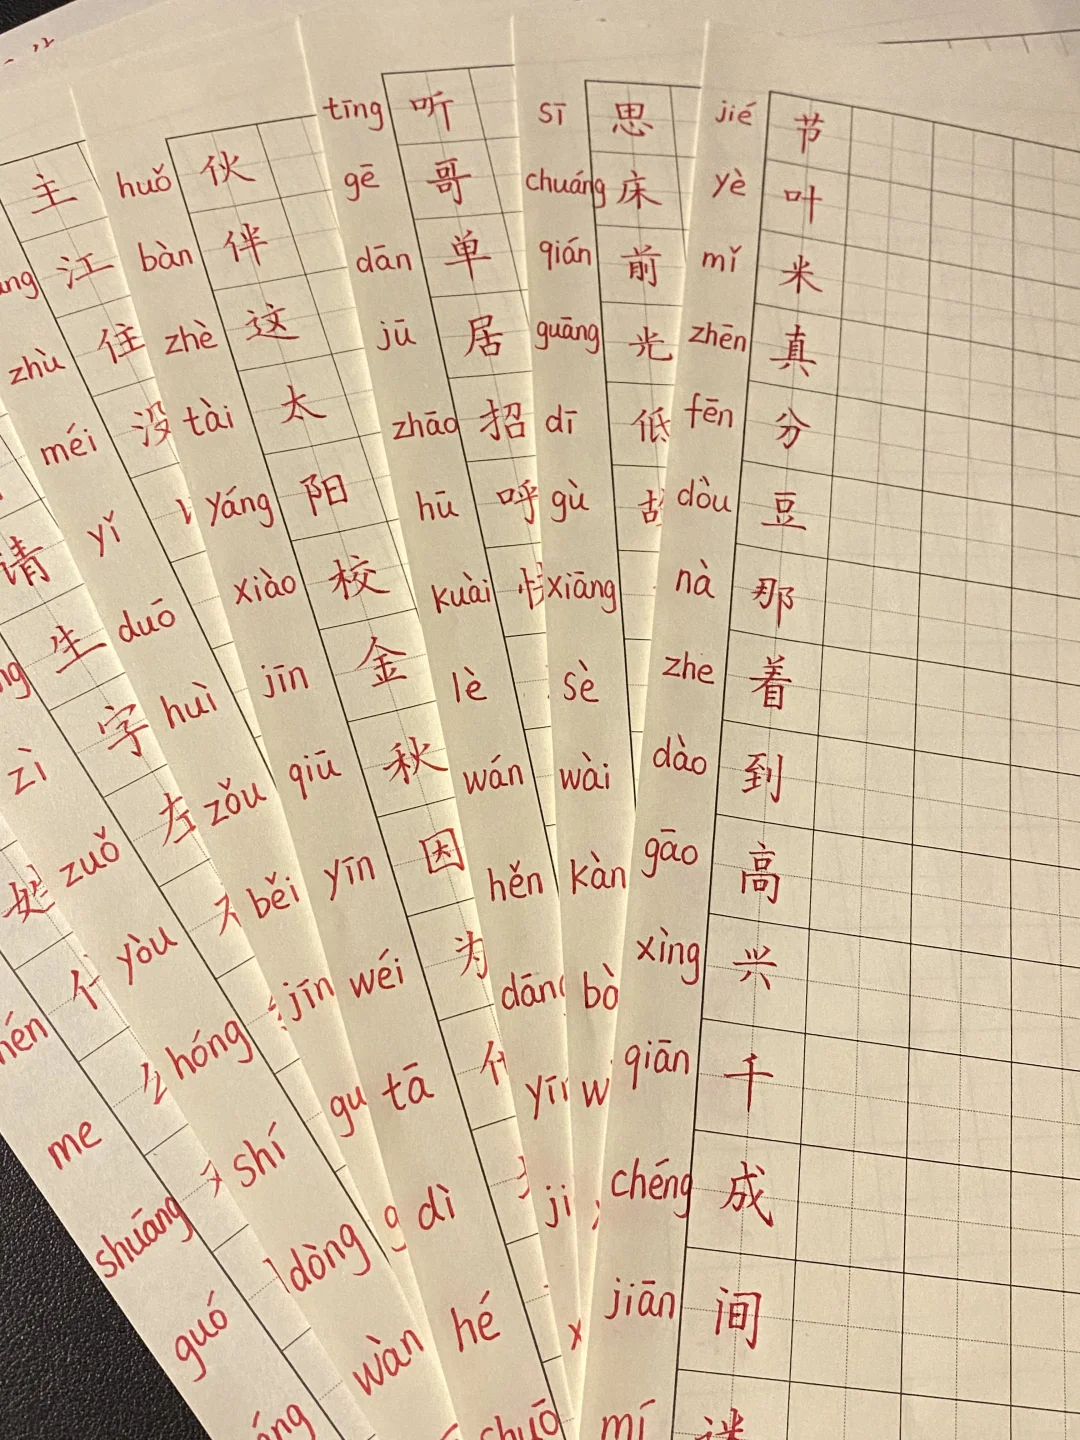 请
生
zì 字
zuǒ 左
yòu
hóng
shí
dòng
wàn
me
shuāng
guó
主
江
zhù 住
méi 没
yǐ
duō
huì
zǒu
běi
huǒ 伙
bàn 伴
zhè 这
tài 太
yáng 阳
xiào 校
jīn 金
qiū 秋
yīn 因
wéi 为
tā
dì
hé
tīng 听
gē 哥
dān 单
jū 居
zhāo 招
hū 呼
kuài 快
lè
wán
hěn
sī 思
chuáng 床
qián 前
guāng 光
dī 低
gù 故
xiāng
sè
wài
kàn
jié 节
yè 叶
mǐ 米
zhēn 真
fēn 分
dòu 豆
nà 那
zhe 着
dào 到
gāo 高
xìng 兴
qiān 千
chéng 成
jiān 间
mí 谜